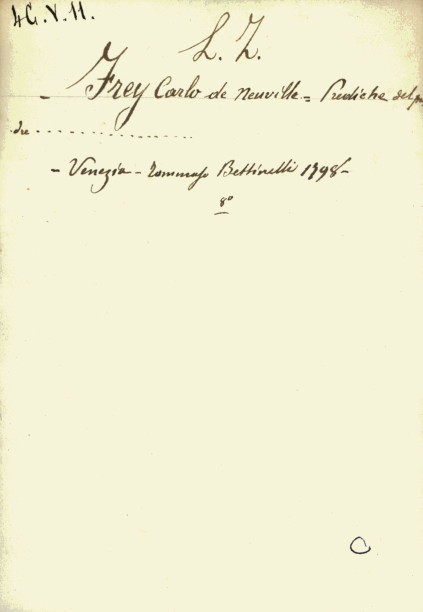 4G.V.11.
L. Z.
- Frey Carlo de Neuville = Prediche del pa
dre ....................
- Venezia - Tommaso Bettinelli 1798 -
8º
C